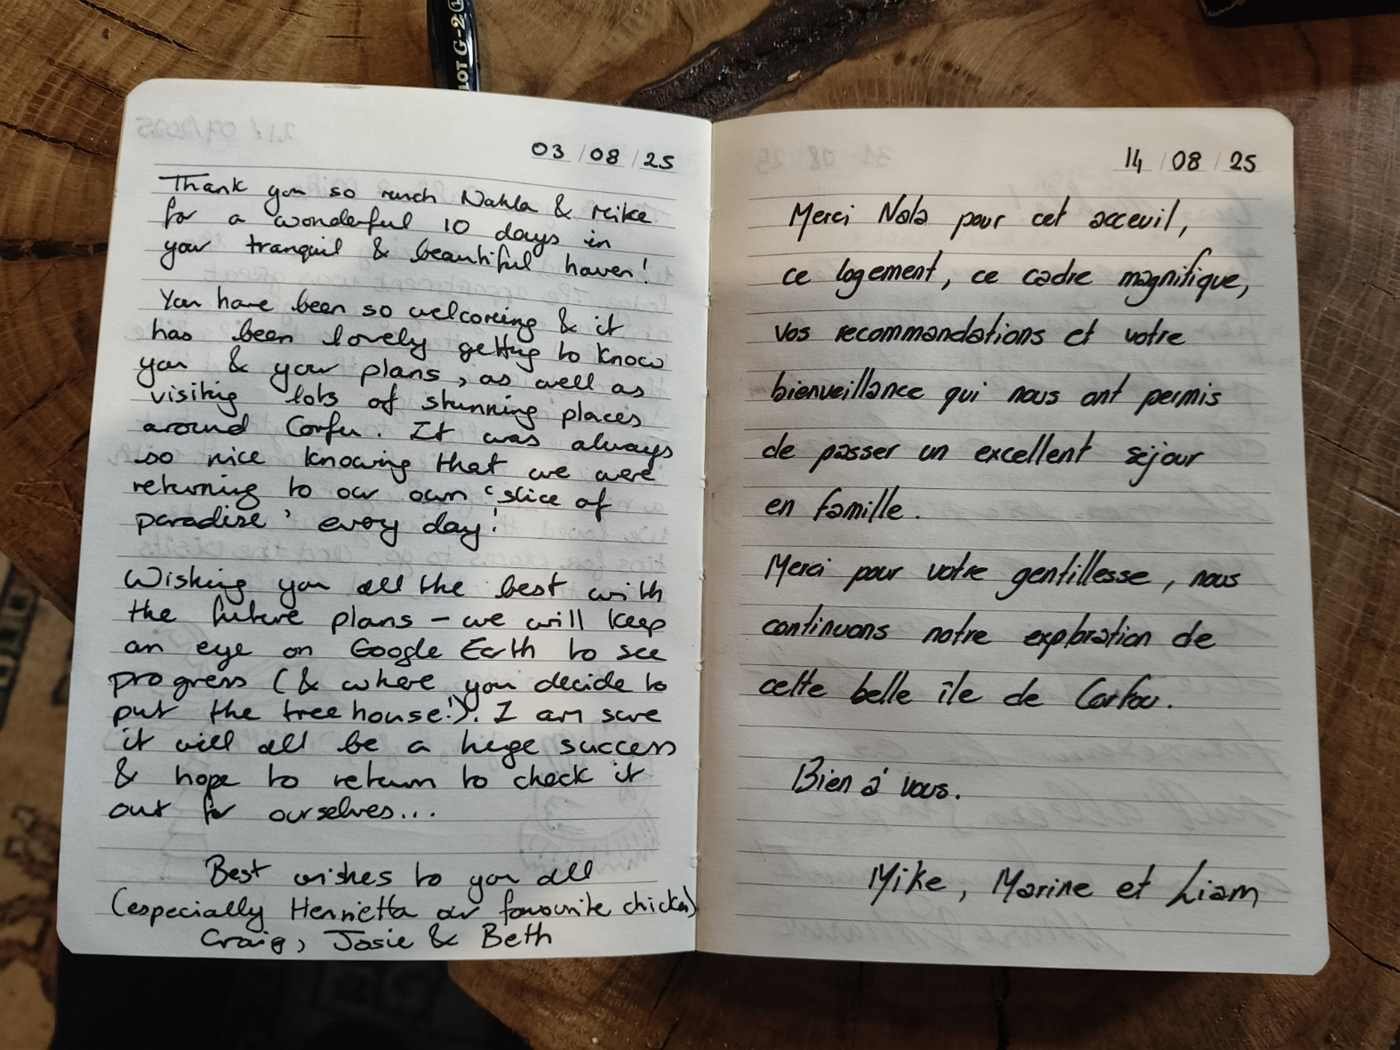 LOT G-2
03/08/25
Thank you so much Nahla & Mike
for a wonderful 10 days in
your tranquil & beautiful haven!
You have been so welcoming & it
has been lovely getting to know
you & your plans, as well as
visiting lots of stunning places
around Corfu. It was always
so nice knowing that we were
returning to our own 'slice of
paradise' every day!
Wishing you all the best with
the future plans - we will keep
an eye on Google Earth to see
progress (& where you decide to
put the treehouse!). I am sure
it will all be a huge success
& hope to return to check it
out for ourselves...
Best wishes to you all
(especially Henrietta our favourite chicken)
Craig, Josie & Beth
14/08/25
Merci Nala pour cet acceuil,
ce logement, ce cadre magnifique,
vos recommandations et votre
bienveillance qui nous ont permis
de passer un excellent séjour
en famille.
Merci pour votre gentillesse, nous
continuons notre exploration de
cette belle île de Corfou.
Bien à vous.
Mike, Marine et Liam